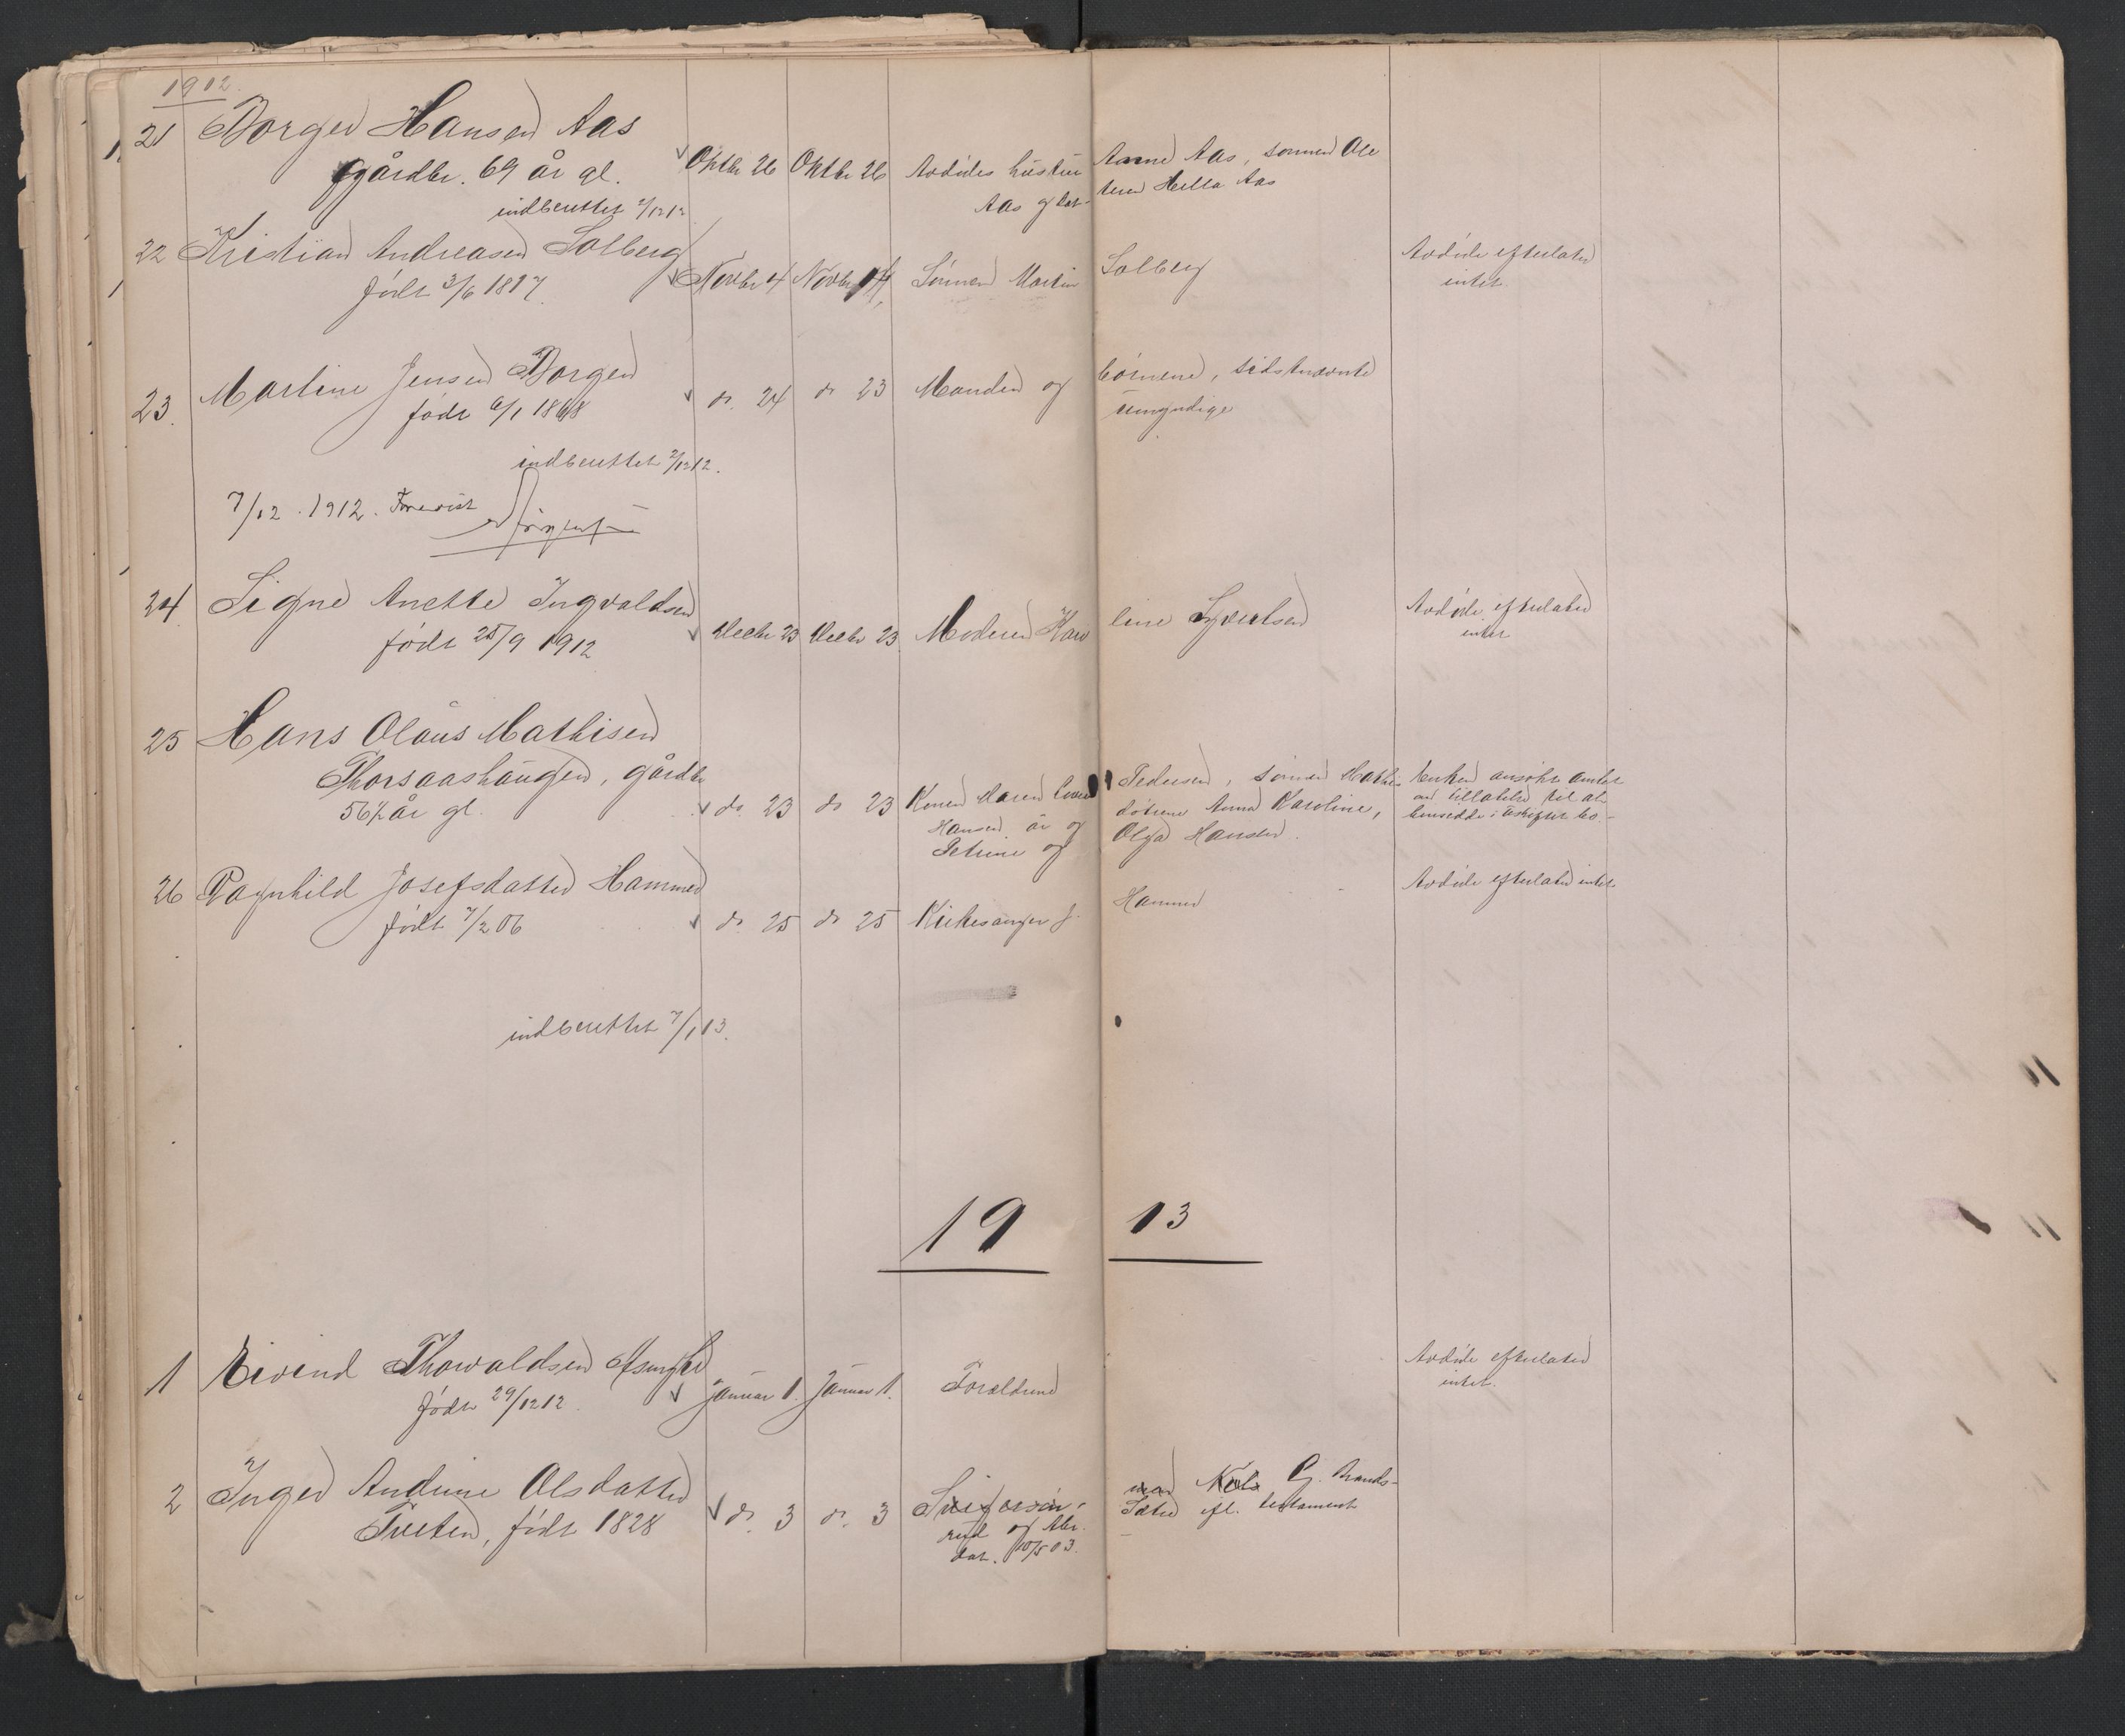 1902.
21 Borger Hansen Aas
gårdbr. 69 år gl. Oktbr 26 Oktbr 26 Avdödes hustru Anne Aas, sönnen Ole
Aas og dat- teren Hella Aas
indberettet 2/12 12
22 Kristian Andreasen Solberg
födt 3/6 1817. Novbr 4 Novbr 4 Sönnen Martin Solberg Avdöde efterlater
intet
23. Martine Jensen Borgen
födt 6/1 1868 do. 24 do 23 Manden og börnene, sidstnævnte
umyndige
indberettet 2/12 12.
7/12. 1912. Forevist
24 Signe Anette Ingvaldsen
födt 25/9 1912 Decbr 23 Decbr 23. Moderen Karo line Syvertsen Avdöde efterlater
intet
25 Hans Olaus Mathisen
Thorsaashaugen, gårdbr
56½ år gl. do. 23 do 23 Konen Maren Pedersen, sönnen Mathis Enken ansökt amtet
Hansen og dötrene Anna Karoline, om tillatelse til at
Petrine og Olga Hansen. hensidde i uskiftet bo.-
26 Ragnhild Josefsdatter Hammer
födt 7/2 06 do. 25 do 25 Kirkesanger J. Hammer Avdöde efterlater intet
indberettet 7/1 13.
19 13
1 Eivind Thorvaldsen
födt 29/12 12. Januar 1. Januar 1. Forældrene Avdöde efterlater
intet.
2 Inger Andrine Olsdatter
Tveten, födt 1828 do. 3 do. 3 G. Brands-
rud og Sæter efl. testament
dat. 10/5 03.